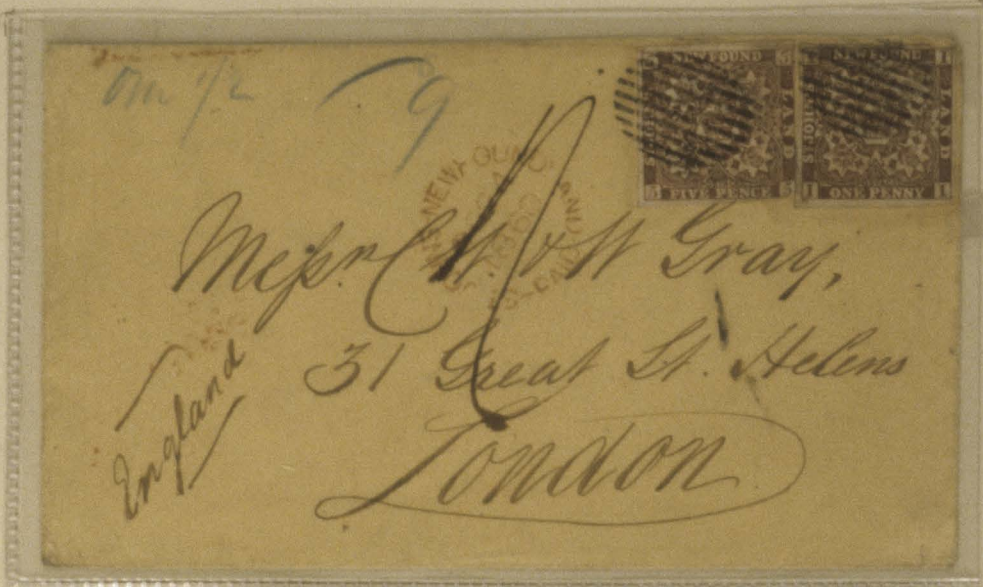 9
NEWFOUND
LAND
5 5
FIVE PENCE
NEWFOUND
LAND
1 1
ONE PENNY
NEWFOUNDLAND
1860
PAID
Messrs. C W & W Gray,
31 Great St. Helens
London
England